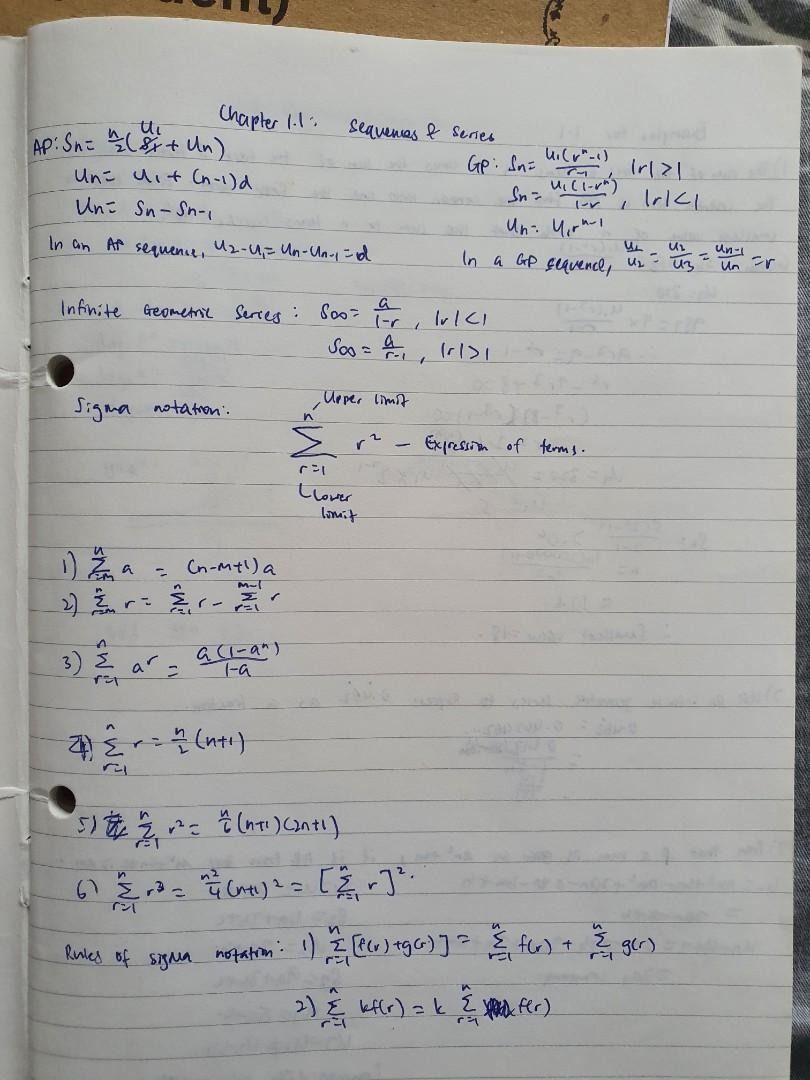 dent)
Chapter 1.1: Sequences & Series
AP: Sn = n/2 (U1 + Un)
Un = U1 + (n-1)d
Un = Sn - Sn-1
In an AP sequence, U2-U1 = Un-Un-1 = d
GP: Sn = U1(r^n-1)/r-1, |r|>1
Sn = U1(1-r^n)/1-r, |r|<1
Un = U1r^n-1
In a GP sequence, U1/U2 = U2/U3 = Un-1/Un = r
Infinite Geometric Series: S∞ = a/1-r, |r|<1
S∞ = a/r-1, |r|>1
Sigma notation:
Upper limit
n
∑ r² – Expression of terms.
r=1
Lower
limit
1) ∑(r=m to n) a = (n-m+1)a
2) ∑(r=m to n) r = ∑(r=1 to n) r - ∑(r=1 to m-1) r
3) ∑(r=1 to n) a^r = a(1-a^n)/1-a
4) ∑(r=1 to n) r = n/2 (n+1)
5) ∑(r=1 to n) r² = n/6 (n+1)(2n+1)
6) ∑(r=1 to n) r³ = n²/4 (n+1)² = [∑(r=1 to n) r]².
Rules of sigma notation: 1) ∑(r=1 to n) [f(r)+g(r)] = ∑(r=1 to n) f(r) + ∑(r=1 to n) g(r)
2) ∑(r=1 to n) kf(r) = k ∑(r=1 to n) f(r)